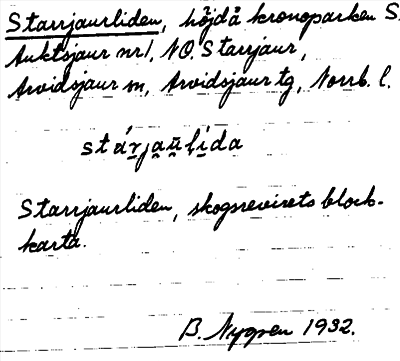 Starrjaurliden, höjd å kronoparken S.
Auktsjaur nr 1, NO. Starrjaur,
Arvidsjaur sn, Arvidsjaur tg, Norrb. l.
stárjaŭlída
Starrjaurliden, skogsrevirets block-
karta.
B. Nygren 1932.